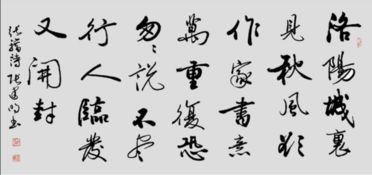 洛陽城裏
見秋風欲
作家書意
萬重復恐
匆〻説不尽
行人臨發
又開封
张籍诗